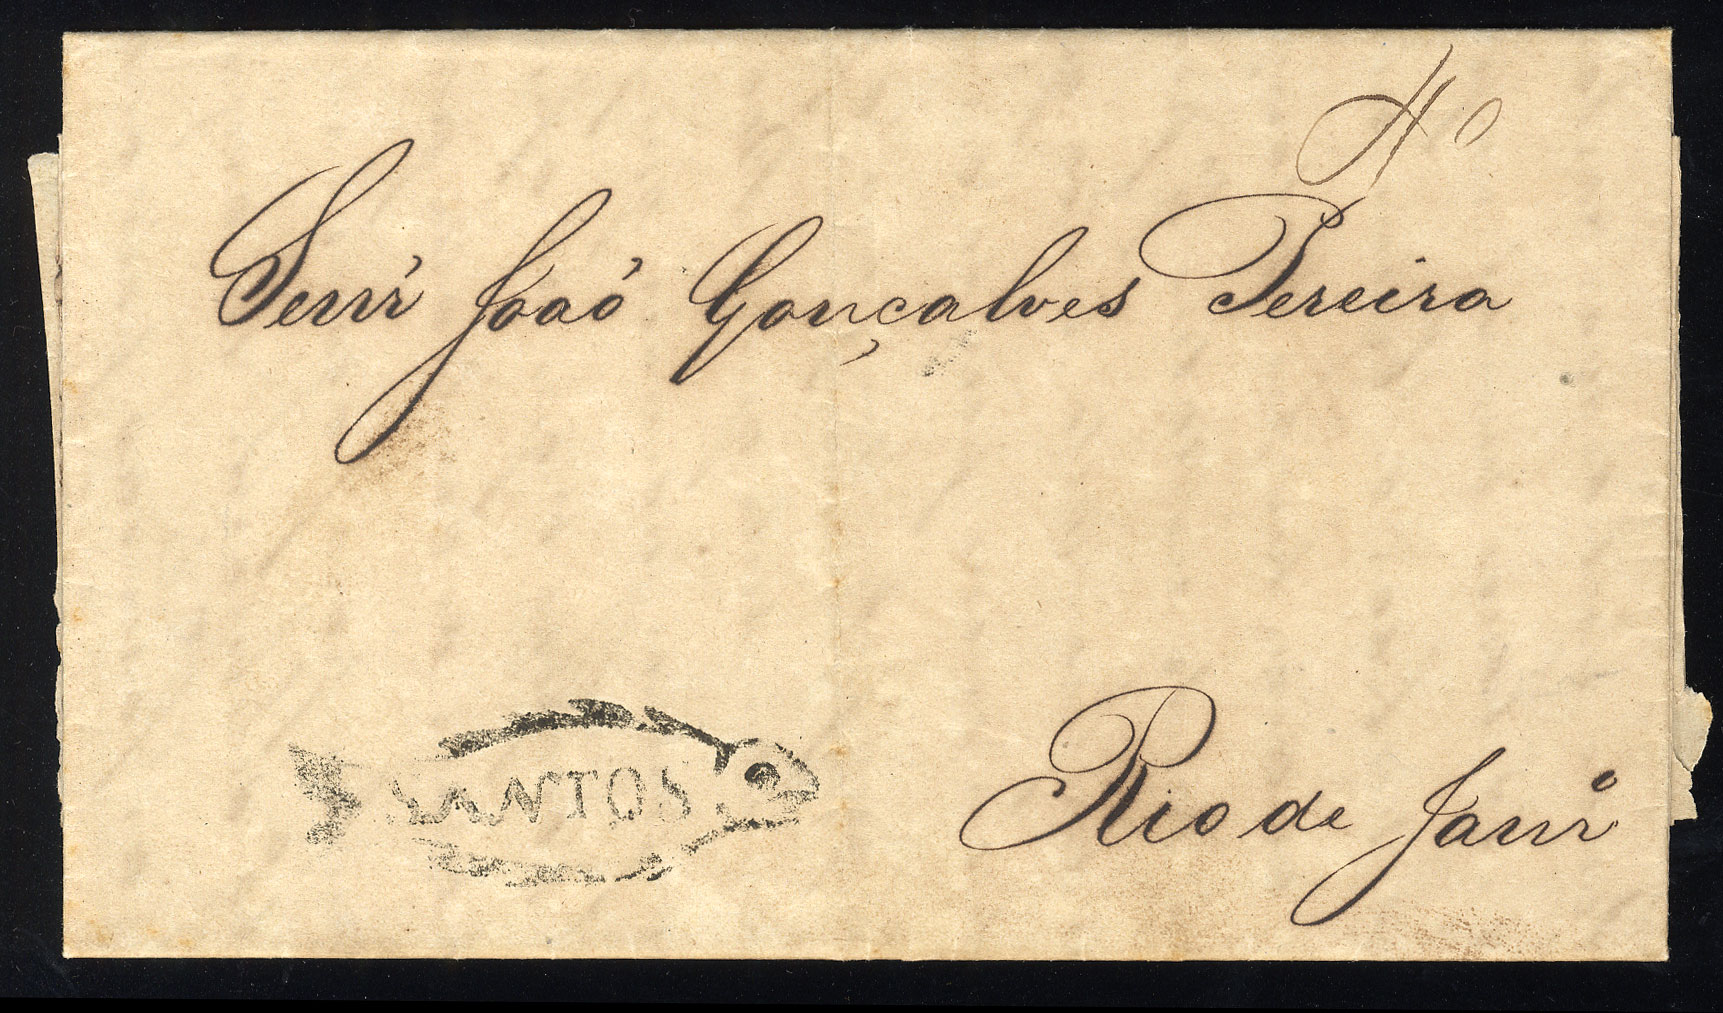 40
Senr João Gonçalves Pereira
SANTOS
Rio de Janro